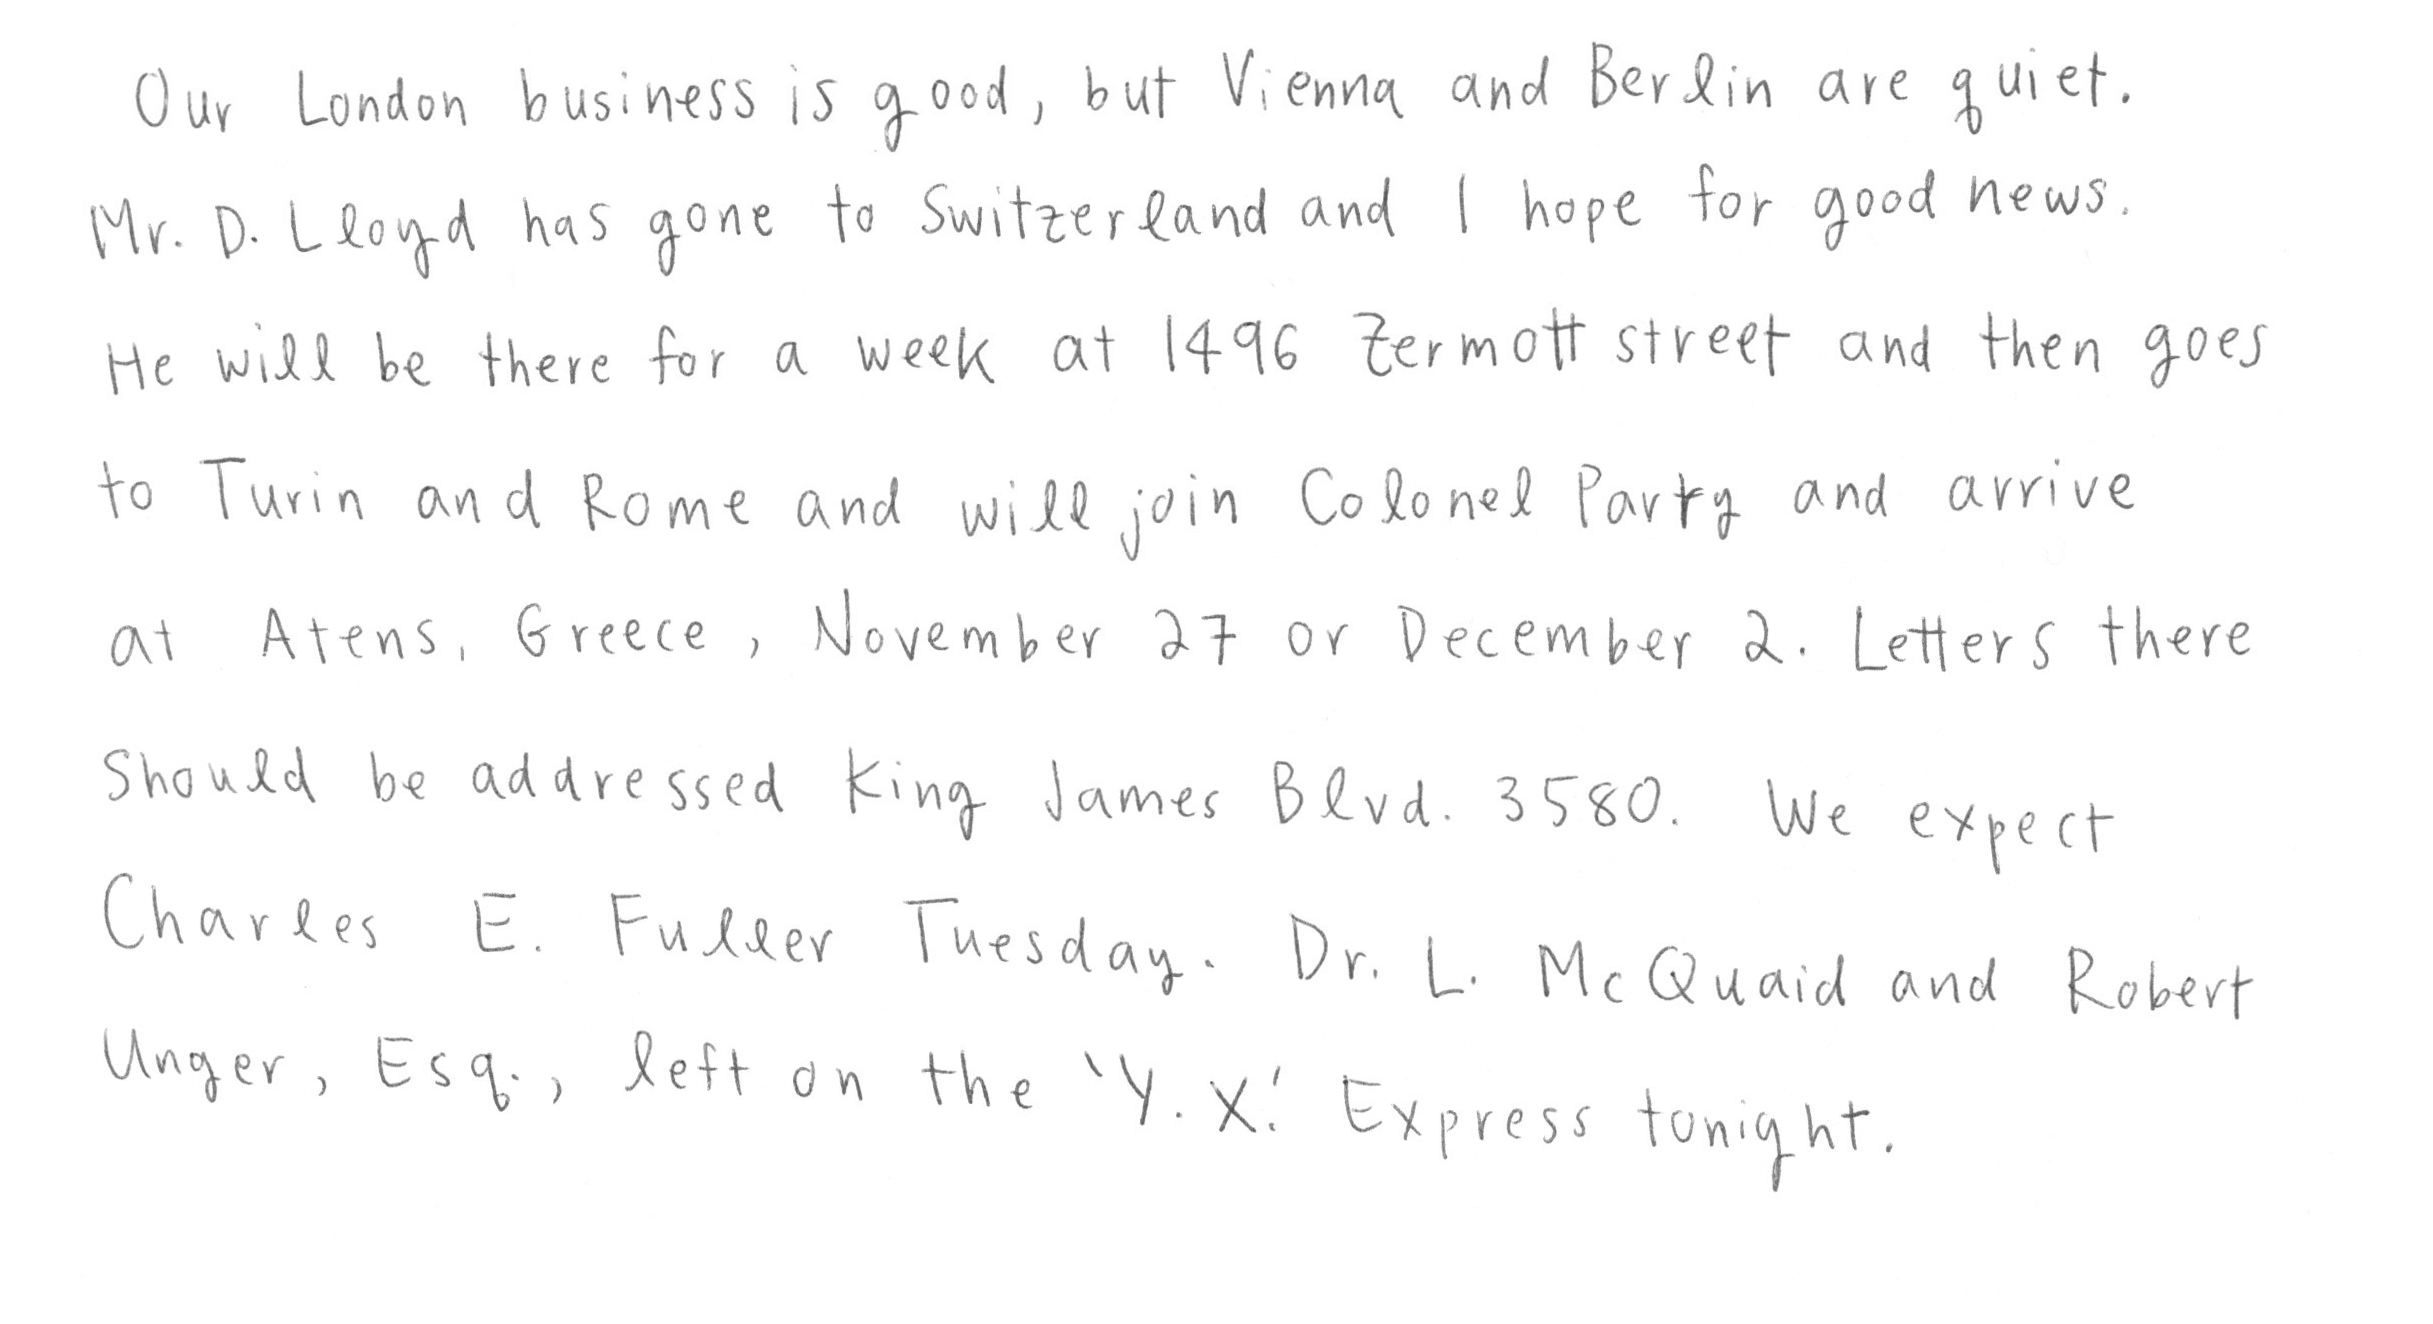 Our London business is good, but Vienna and Berlin are quiet.
Mr. D. Lloyd has gone to Switzerland and I hope for good news.
He will be there for a week at 1496 Zermott street and then goes
to Turin and Rome and will join Colonel Parry and arrive
at Atens, Greece, November 27 or December 2. Letters there
Should be addressed King James Blvd. 3580. We expect
Charles E. Fuller Tuesday. Dr. L. McQuaid and Robert
Unger, Esq., left on the 'Y. X.' Express tonight.